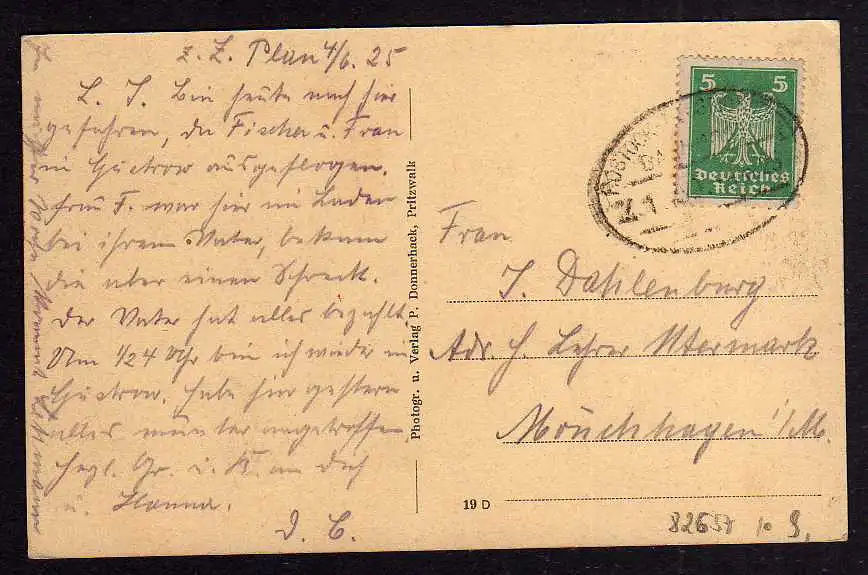 z. Z. Plau 4/6. 25
L. J. Bin heute nach hier
gefahren, da Fischer u. Frau
in Güstrow ausgeflogen.
Frau F. war hier im Laden
bei ihrem Vater, bekam
die aber einen Schreck.
Der Vater hat alles bezahlt.
Um 1/2 4 Uhr bin ich wieder in
Güstrow. Habe hier gestern
alles munter angetroffen.
Herzl. Gr. u. K. an Dich
u. Hanna.
Photogr. u. Verlag P. Donnerhack, Pritzwalk
19 D
5 5
Deutsches
Reich
ROSTOCK
Frau
J. Dahlenburg
Adr. H. Lehrer Utermark
Mönchhagen i/M.
82657